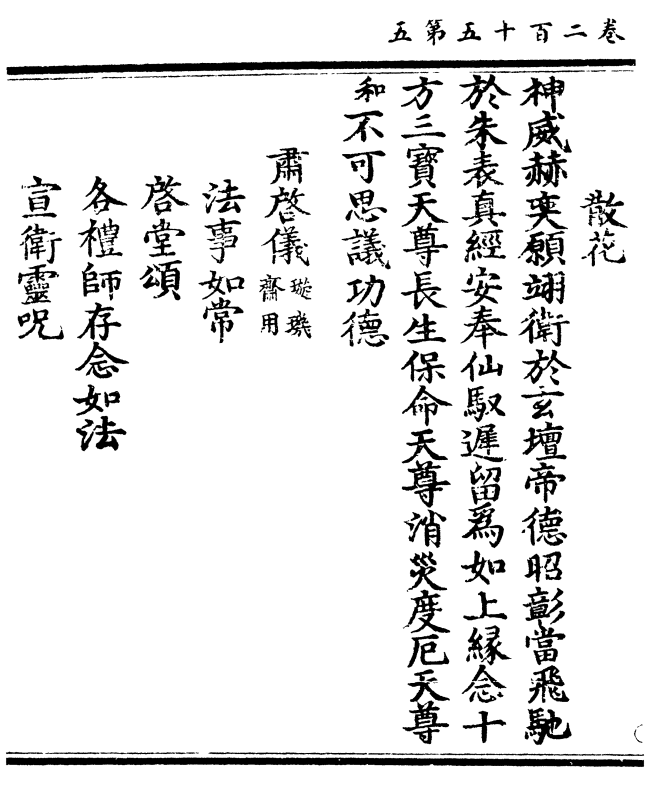 卷二百十五第五
散花
神威赫奕願翊衛於玄壇帝德昭彰當飛馳
於朱表真經安奉仙馭遲留爲如上緣念十
方三寶天尊長生保命天尊消災度厄天尊
和不可思議功德
肅啓儀璇璣齋用
法事如常
啓堂頌
各禮師存念如法
宣衛靈呪